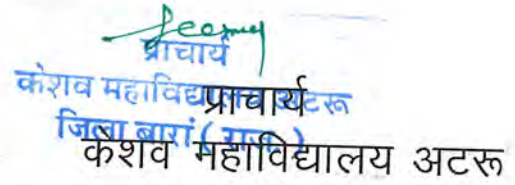 प्राचार्य
केशव महाविद्यालय अटरू
जिला बारां (राज.)
प्राचार्य
केशव महाविद्यालय अटरू